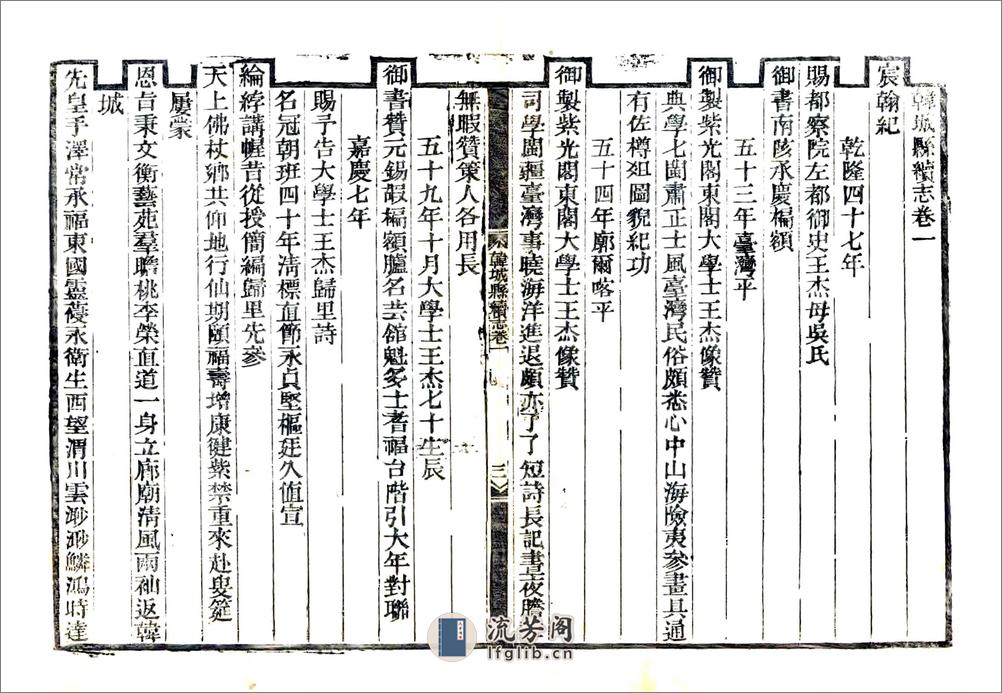 韓城縣續志卷一
宸翰紀
乾隆四十七年
賜都察院左都御史王杰母吳氏
御書南陔承慶楄額
五十三年臺灣平
御製紫光閣東閣大學士王杰像贊
典學七閩肅正士風臺灣民俗頗悉心中山海險夷參畫具通
有佐樽俎圖貌紀功
五十四年廓爾喀平
御製紫光閣東閣大學士王杰像贊
司學閩疆臺灣事曉海洋進退頗亦了了短詩長記晝夜
韓城縣續志卷一
三
無暇贊策人各用長
五十九年十月大學士王杰七十生辰
御書贊元錫嘏楄額臚名芸館魁多士耆福台階引大年對聯
嘉慶七年
賜予告大學士王杰歸里詩
名冠朝班四十年清標直節永貞堅樞廷久值宣
綸綍講幄昔從授簡編歸里先參
天上佛杖鄉共仰地行仙期頤福壽增康健紫禁重來赴叟筵
屢蒙
恩旨秉文衡藝苑羣瞻桃李榮直道一身立廊廟清風兩袖返韓
城
先皇手澤常承福東國靈蓡永衛生西望渭川雲渺渺鱗鴻時達
流芳阁
lfglib.cn